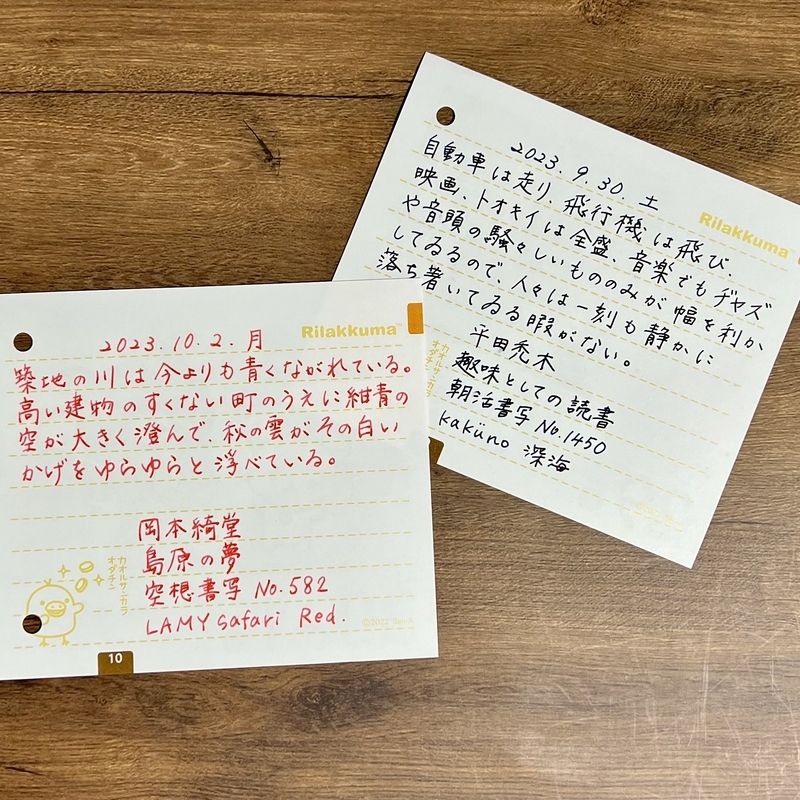 2023.10.2.月
Rilakkuma™
築地の川は今よりも青くながれている。
高い建物のすくない町のうえに紺青の
空が大きく澄んで、秋の雲がその白い
かげをゆらゆらと浮べている。
岡本綺堂
島原の夢
空想書写 No.582
LAMY safari Red.
カオルサンカラ
オダチン
10
2023.9.30.土
Rilakkuma™
自動車は走り、飛行機は飛び、
映画、トオキイは全盛、音楽でもヂャズ
や音頭の騒々しいもののみが幅を利か
してゐるので、人々は一刻も静かに
落ち着いてゐる暇がない。
平田禿木
趣味としての読書
朝活書写 No.1450
kaküno 深海
カオルサンカラ
オダチン